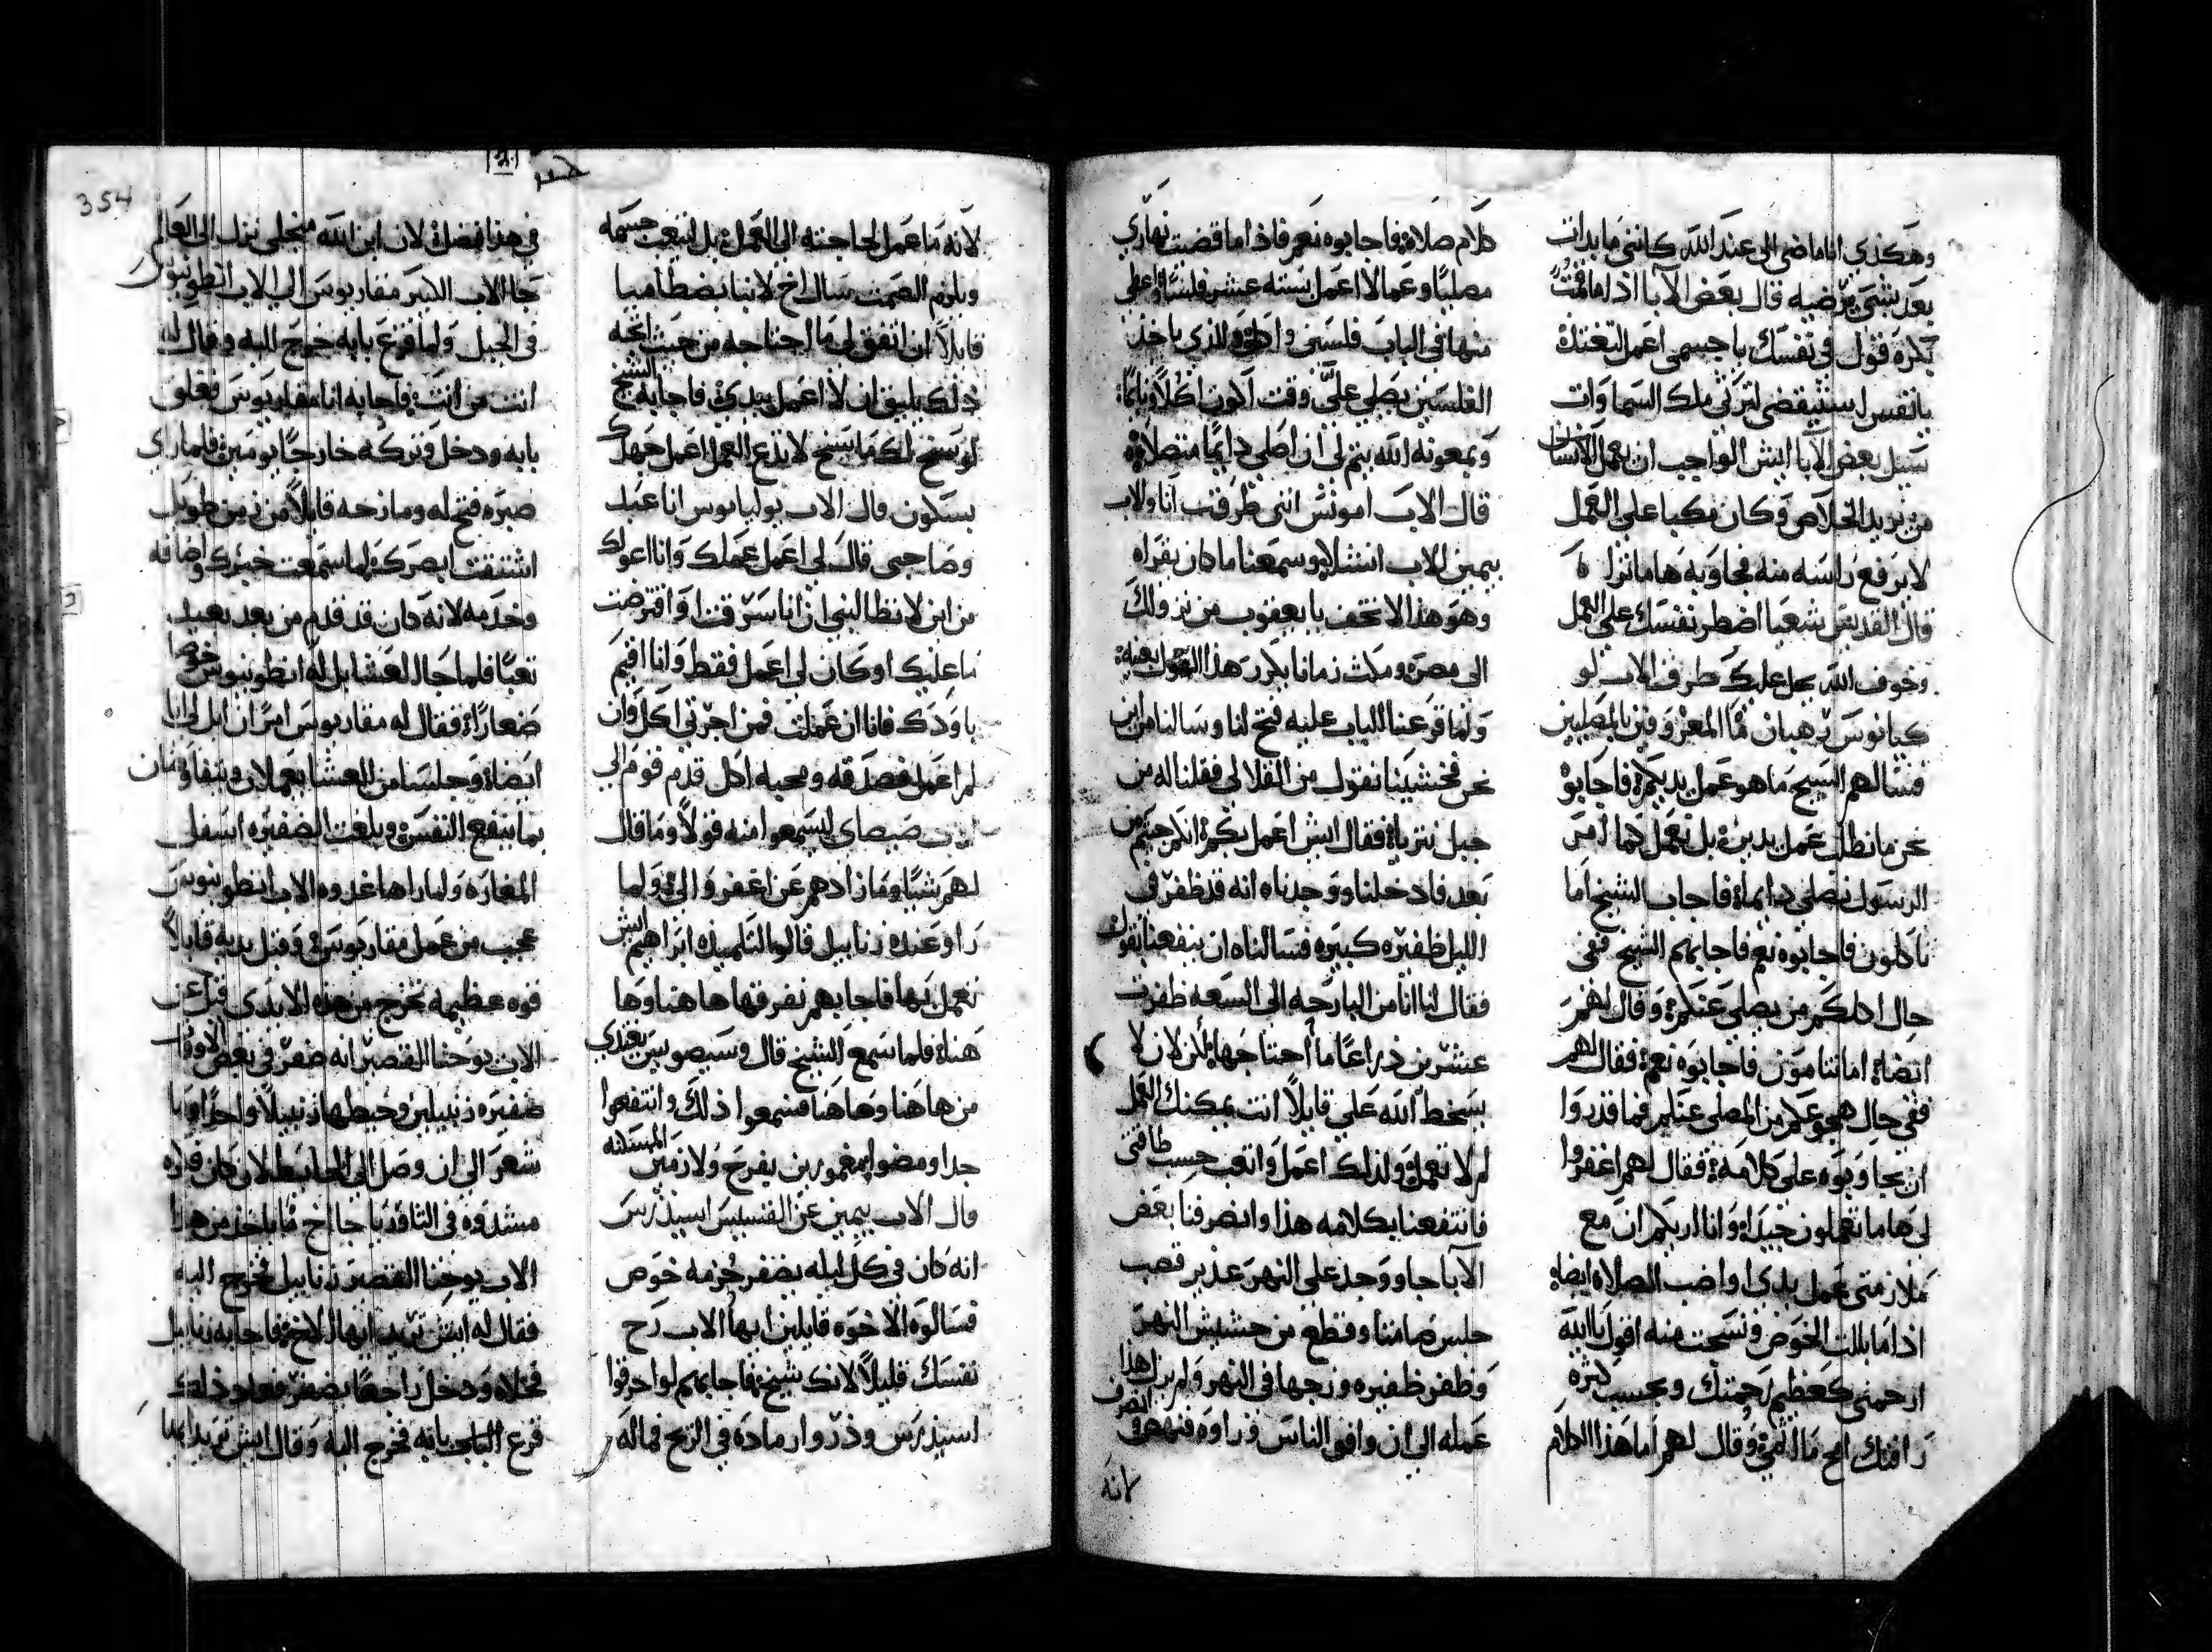 وهكذي انا ماضي الى عند الله كانني ما بدات
بعد بشي يرضيه قال بعض الابا اذا ما قمت
بكره فقول في نفسك يا جسمي اعمل لتغتذي
يا نفس استيقضي لترثي ملك السماوات
سيل بعض الابا ايش الواجب ان يعمل الانسان
من يريد الخلاص وكان مكبا على العمل
لا يرفع راسه منه فجاوبه هاما تراه
قال القديس شعيا اضطر نفسك على العمل
وخوف الله يحل عليك طرق الاب لو
كيانوس رهبان هما المعروفين بالمصليين
فسالهم الشيخ ما هو عمل يديكم فاجابوه
نحن ما نطلب عمل يدين بل نعمل كما امر
الرسول نصلي دايما فاجاب الشيخ اما
تاكلون فاجابوه نعم فاجابهم الشيخ ففي
حال اكلكم من يصلي عنكم وقال لهم
ايضا اما تنامون فاجابوه نعم فقال لهم
ففي حال هجوعكم من المصلي عنكم فما قدروا
ان يجاوبوه على كلامه فقال لهم اغفروا
لي ها ما تعملون جيدا وانا اريكم ان مع
ملازمتي عمل يدي اواضب الصلاة ايضا
اذا ما بللت الخوص ونسجت منه اقول يا الله
ارحمني كعظيم رحمتك وبحسب كثره
رافتك امح مااثمي وقال لهم اما هذا الكلام
كلام صلاة فاجابوه نعم فاذا ما قضيت نهاري
مصليا وعمالا اعمل بسته عشر فلسا واعطي
منها في الباب فلسين واكل والذي ياخذ
الفلسين يصلي علي وقت اكون اكلا ونايما
وبمعونة الله يتم لي ان اصلي دايما متصلا
قال الاب امونس انني طرقت انا والاب
بيمين الاب انشلا وسمعنا ما كان يقراه
وهو هذا لا تخف يا يعقوب من نزولك
الى مصر ومكث زمانا يكرر هذا القول بعينه
ولما قرعنا الباب عليه فتح لنا وسالنا من اين
نحن فخشينا نقول من القلالي فقلنا له من
جبل نتريا فقال ايش اعمل بكم انكم جيتم من
بعد فادخلنا ووجدناه انه قد ظفر في
الليل ظفيره كبيره فسالناه ان ينفعنا بقول
فقال لنا انا من البارحه الى السعه ظفرت
عشرين ذراعا ما احتاجها لكن لان لا
يسخط الله علي قايلا انت يمكنك العمل
لم لا تعمل ولذلك اعمل واتعب حسب طاقتي
فانتفعنا بكلامه هذا وانصرفنا بعض
الابا جا ووجد على النهر غدير قصب
جلس صامتا وقطع من حشيش النهر
وظفر ظفيره وزجها في النهر ولم يزل هذا
عمله الى ان وافى الناس وراوه فنهض وانصرف
لانه
لانه ما عمل لحاجته الى العمل بل ليتعب جسمه
ويلزم الصمت سال اخ لابنا بضطاميا
قايلا ان اتفق لي ما احتاجه من حيث اتجه
ذلك يليق ان لا اعمل بيدي فاجابه الشيخ
لو سنح لك ما سنح لا تدع العمل اعمل جهدك
بسكون قال الاب بولياوس انا عبد
وصاحبي قال لي اعمل عملك وانا اعولك
من اين لا تطالبني ان انا سرقت او اقترضت
ما عليك او كان لي اعمل فقط وانا اقيم
باودك فانا ان عملت فمن اجرتي اكل وان
لم اعمل فصدقه ومحبه اكل قدم قوم الى
صيصاي ليسمعوا منه قولا وما قال
لهم شيا وما زادهم عن اغفروا لي ولما
راو عنده زنابيل قالوا لتلميذه ابراهيم ايش
تعمل بها فاجابهم نفرقها ها هنا وها
هنا فلما سمع الشيخ قال وسيصوس يغتذي
من ها هنا وها هنا فسمعوا ذلك وانتفعوا
جدا ومضوا مغمورين بفرح ولازمين المسكنه
قال الاب بيمين عن القسيس اسيذرس
انه كان في كل ليله يضفر حزمه خوص
فسالوه الاخوه قايلين ايها الاب رح
نفسك قليلا لانك شيخ فاجابهم لو احرقوا
اسيذرس وذروا رماده في الريح فما له
في هذا فضل لان ابن الله من اجلي نزل الى العالم
جا الاب الكبير مقاريوس الى الاب انطونيوس
في الجبل ولما قرع بابه خرج اليه وقال له
انت من انت فاجابه انا مقاريوس فغلق
بابه ودخل وتركه خارجا يومين فلما راي
صبره فتح له ومازحه قايلا من زمن طويل
اشتقت ابصرك لما سمعت خبرك واضافه
وخدمه لانه كان قد قدم من بعد بعيد
تعبا فلما جا العشا بل له انطونيوس خوصا
ضعارا فقال له مقاريوس امر ان ابل لي انا
ايضا وجلسا من العشا يعملان ويتفاوضان
بما ينفع النفس وبلغت الضفيره اسفل
المغاره ولما راها غدوه الاب انطونيوس
عجب من عمل مقاريوس وقبل يديه قايلا
قوه عظيمه تخرج من هذه الايدي قيل عن
الاب يوحنا القصير انه ضفر في بعض الاوقات
ضفيره زنبيلين وخيطها زنبيلا واحدا وما
شعر الى ان وصل الى الحايط لان كان فكره
مشدوه في الثاوريا جا اخ ما ياخذ من هذا
الاب يوحنا القصير زنابيل فخرج اليه
فقال له ايش تريد ايها الاخ فاجابه زنابيل
فخلاه ودخل راجعا يضفر فعاد ذلك
قرع الباب بابه فخرج اليه وقال ايش تريد ايها
354